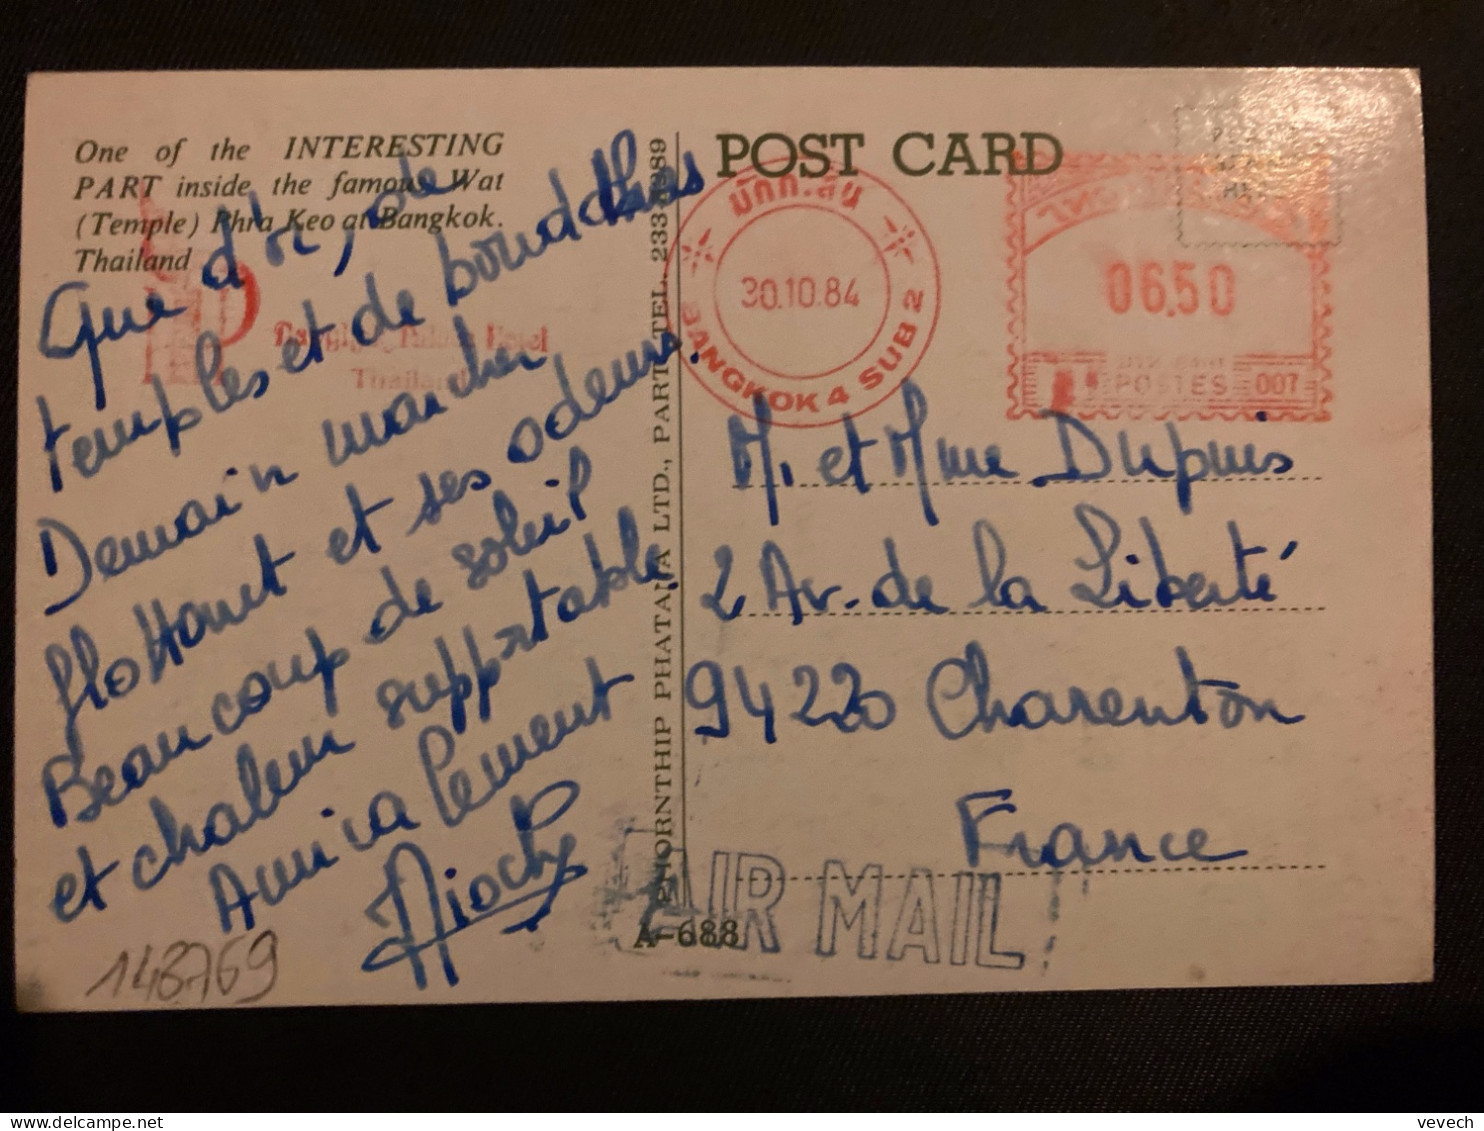 One of the INTERESTING
PART inside the famous Wat
(Temple) Phra Keo at Bangkok.
Thailand
Que d'or, de
temples et de bouddhas
Demain marcher
flottant et ses odeurs.
Beaucoup de soleil
et chaleur supportable.
Amicalement
148769
Hotel
Thailand
PHORNTHIP PHATANA LTD., PART. TEL. 233
A-688
POST CARD
30.10.84
BANGKOK 4 SUB 2
06.50
POSTES 007
M. et Mme Dupuis
2 Av. de la Liberté
94220 Charenton
France
AIR MAIL
vevech